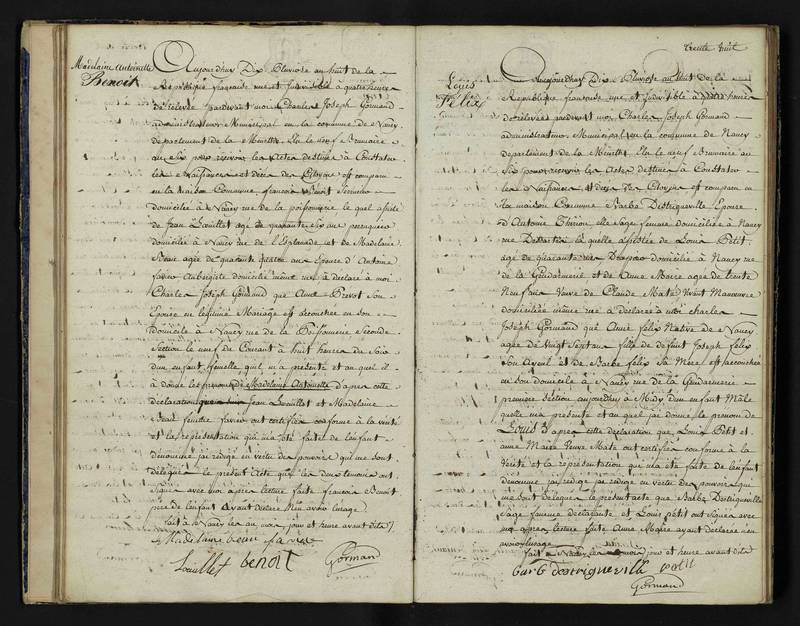 Madelaine Antoinette
Benoit
Aujourdhuy Dix Pluviose an huit de la
Republique française une et Indivisible à quatre heures
de relevée pardevant moi Charles Joseph Gormand
administrateur Municipal en la commune de Nancy
departement de la Meurthe Elu le neuf Brumaire
an Six pour recevoir les actes destinés à Constater
les Naissances et deces des Citoyens est comparu
en la maison Commune françois Benoit
domicilié à Nancy rue de la poissonnerie le quel assisté
de Jean Louillet agé de quarante six ans perruquier
domicilié à Nancy rue de l'Esplanade et de Madelaine
Beau agée de quarante quatre ans Epouse d'Antoine
favier Aubergiste domicilié même rue à declaré à moi
Charles Joseph Gormand que Anne Prevot son
Epouse en legitime Mariage est accouchée en son
domicile à Nancy rue de la Poissonnerie Seconde
Section le neuf du Courant à huit heures du Soir
d'un enfant femelle, qu'il m'a presenté et au quel il
à donné les prenoms de Madelaine Antoinette d'apres cette
declaration Jean Louillet et Madelaine
Beau femme favier ont certifié conforme à la verité
et la representation qui m'a été faite de l'enfant
denommé j'ai redigé en vertu des pouvoirs qui me sont
delegués le present Acte que les deux temoins ont
Signés avec moi apres lecture faite francois Benoit
pere de l'enfant ayant declaré n'en avoir l'usage
fait à Nancy les an mois, jour et heure avant dits
Madelaine beau favie
Louillet benoit Gormand
trente huit
Louis
Felix
Aujourdhuy Dix Pluviose an huit de la
Republique française une et Indivisible à quatre heures
de relevée pardevant moi Charles Joseph Gormand
administrateur Municipal en la commune de Nancy
departement de la Meurthe Elu le neuf Brumaire an
Six pour recevoir les actes destinés à Constater
les Naissances et deces des Citoyens est comparu en
la maison Commune Barbe Distrigueville Epouse
d'Antoine Thirion elle Sage femme domiciliée à Nancy
rue la quelle assistée de Louis Petit
agé de quarante ans domicilié à Nancy rue
de la Gendarmerie et de Anne Marie agée de trente
Neuf ans Veuve de Claude Mate vivant Manœuvre
domiciliée même rue à declarée à moi charles
Joseph Gormand que Anne felix Native de Nancy
agée de Vingt Sept ans fille de defunt Joseph felix
Son ayeul et de Barbe felix Sa Mere est accouchée
en son domicile à Nancy rue de la Gendarmerie
premiere Section aujourdhuy à Midy d'un enfant Mâle
quelle m'a presenté et au quel elle à donné le prenom de
Louis apres cette declaration que Louis Petit et
Anne Marie Veuve Mate ont certifié conforme à la
Verité et la representation qui m'a été faite de l'enfant
denommé j'ai redigé en vertu des pouvoirs qui
me sont delegués le present acte que Barbe Distrigueville
Sage femme declarante et Louis Petit ont Signés avec
moi apres lecture faite Anne Marie ayant declarée n'en
avoir l'usage
fait à Nancy les an mois jour et heure avant dits
barbe destrigueville petit
Gormand